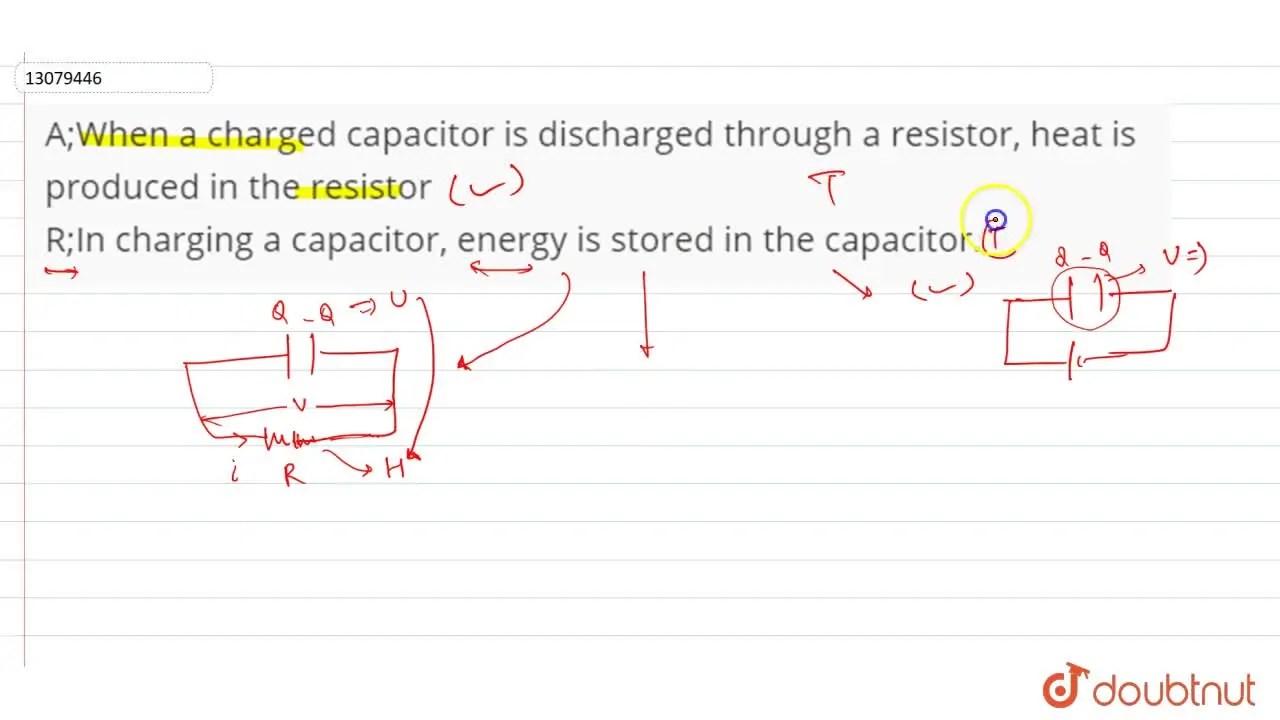 13079446
A;When a charged capacitor is discharged through a resistor, heat is
produced in the resistor (✓) T
R;In charging a capacitor, energy is stored in the capacitor. (T
(✓)
Q -Q ⇒ U
V
i R → H
Q -Q → U ⇒)
doubtnut